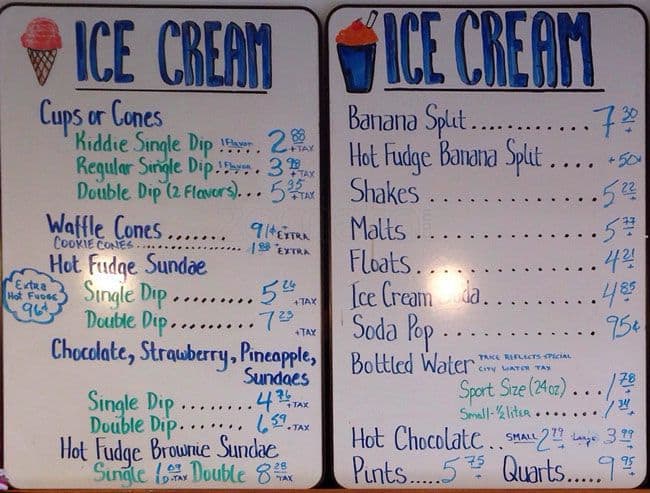 ICE CREAM
Cups or Cones
Kiddie Single Dip 1 Flavor .. 2 88 + TAX
Regular Single Dip 1 Flavor .. 3 98 + TAX
Double Dip (2 Flavors)... 5 35 + TAX
Waffle Cones ....... 91¢ EXTRA
COOKIE CONES ............ 1 88 EXTRA
Hot Fudge Sundae
Extra Hot Fudge 96¢
Single Dip ......... 5 26 + TAX
Double Dip......... 7 23 + TAX
Chocolate, Strawberry, Pineapple,
Sundaes
Single Dip ........ 4 76 + TAX
Double Dip........ 6 59 + TAX
Hot Fudge Brownie Sundae
Single TAX Double 8 28 TAX
ICE CREAM
Banana Split............ 7 30 +
Hot Fudge Banana Split .... +50¢
Shakes .............. 5 22 +
Malts .............. 5 77 +
Floats.............. 4 21 +
Ice Cream Soda......... 4 85 +
Soda Pop ............. 95¢
Bottled Water PRICE REFLECTS SPECIAL
CITY WATER TAX
Sport Size (24oz) ... 1 78 +
Small-½ liter ....... 1 34 +
Hot Chocolate.. SMALL 2 79 Large 3 99 +
Pints..... 5 75 + Quarts..... 9 95 +